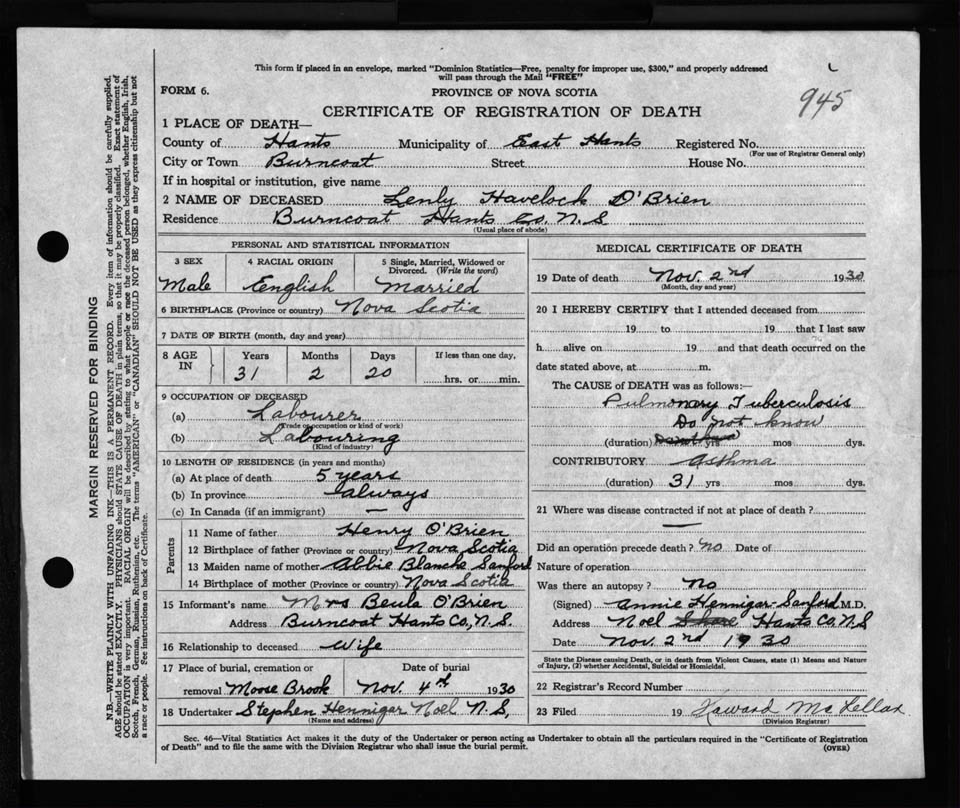 This form if placed in an envelope, marked "Dominion Statistics—Free, penalty for improper use, $300," and properly addressed
will pass through the Mail "FREE"
945
FORM 6.
PROVINCE OF NOVA SCOTIA
CERTIFICATE OF REGISTRATION OF DEATH
1 PLACE OF DEATH—
County of Hants Municipality of East Hants Registered No.
(For use of Registrar General only)
City or Town Burncoat Street House No.
If in hospital or institution, give name
2 NAME OF DECEASED Lenly Havelock O'Brien
Residence Burncoat Hants Co. N.S
(Usual place of abode)
PERSONAL AND STATISTICAL INFORMATION
3 SEX 4 RACIAL ORIGIN 5 Single, Married, Widowed or Divorced. (Write the word)
Male English Married
6 BIRTHPLACE (Province or country) Nova Scotia
7 DATE OF BIRTH (month, day and year)
8 AGE IN Years Months Days If less than one day,
31 2 20 hrs. or min.
9 OCCUPATION OF DECEASED
(a) Labourer
(Trade occupation or kind of work)
(b) Labouring
(Kind of industry)
10 LENGTH OF RESIDENCE (in years and months)
(a) At place of death 5 years
(b) In province always
(c) In Canada (if an immigrant) —
Parents
11 Name of father Henry O'Brien
12 Birthplace of father (Province or country) Nova Scotia
13 Maiden name of mother Abbie Blanche Sanford
14 Birthplace of mother (Province or country) Nova Scotia
15 Informant's name Mrs Beula O'Brien
Address Burncoat Hants Co, N.S.
16 Relationship to deceased Wife
17 Place of burial, cremation or Date of burial
removal Moose Brook Nov. 4th 1930
18 Undertaker Stephen Hennigar Noel N.S,
(Name and address)
MEDICAL CERTIFICATE OF DEATH
19 Date of death Nov. 2nd 1930
(Month, day and year)
20 I HEREBY CERTIFY that I attended deceased from
19 to 19 that I last saw
h alive on 19 and that death occurred on the
date stated above, at m.
The CAUSE of DEATH was as follows:—
Pulmonary Tuberculosis
Do not know
(duration) yrs mos dys.
CONTRIBUTORY Asthma
(duration) 31 yrs mos dys.
21 Where was disease contracted if not at place of death?
—
Did an operation precede death? no Date of
Nature of operation
Was there an autopsy? no
(Signed) Annie Hennigar-Sanford M.D.
Address Noel Shore Hants Co. N.S
Date Nov. 2nd 1930
State the Disease causing Death, or in death from Violent Causes, state (1) Means and Nature
of Injury, (2) whether Accidental, Suicidal or Homicidal.
22 Registrar's Record Number
23 Filed 19 Howard McLellan
(Division Registrar)
Sec. 46—Vital Statistics Act makes it the duty of the Undertaker or person acting as Undertaker to obtain all the particulars required in the "Certificate of Registration
of Death" and to file the same with the Division Registrar who shall issue the burial permit.
(OVER)
MARGIN RESERVED FOR BINDING
N.B.—WRITE PLAINLY WITH UNFADING INK—THIS IS A PERMANENT RECORD. Every item of information should be carefully supplied.
AGE should be stated EXACTLY. PHYSICIANS should STATE CAUSE OF DEATH in plain terms, so that it may be properly classified. Exact statement of
OCCUPATION is very important. RACIAL ORIGIN will be described by stating to what people or race the deceased person belonged, whether English, Irish,
Scotch, French, German, Russian, Ruthenian, etc. The terms "AMERICAN" or "CANADIAN" SHOULD NOT BE USED as they express citizenship but not
a race or people. See instructions on back of Certificate.